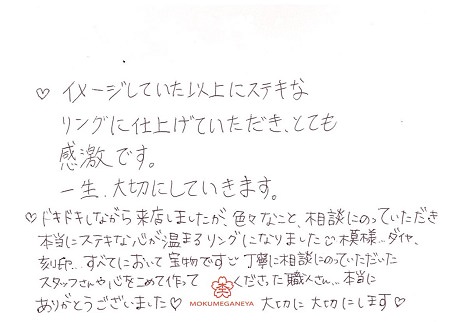 ♡ イメージしていた以上にステキな
リングに仕上げていただき、とても
感激です。
一生、大切にしていきます。
♡ ドキドキしながら来店しましたが、色々なこと、相談にのっていただき
本当にステキな心が温まるリングになりました☺ 模様…ダイヤ、
刻印…すべてにおいて宝物です☺ 丁寧に相談にのっていただいた
スタッフさんや心をこめて作ってくださった職人さん…本当に
ありがとうございました♡ 大切に大切にします♡
MOKUMEGANEYA